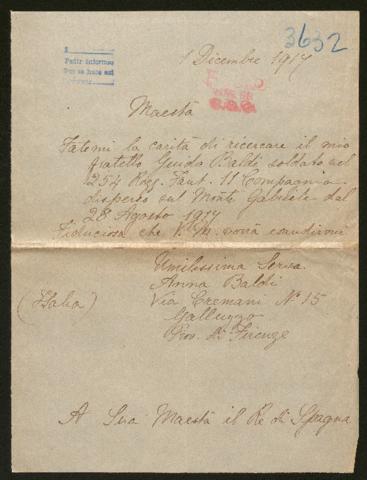 3632
Pedir informes
1 Dicembre 1917
Maestà
Fatemi la carità di ricercare il mio
fratello Guido Baldi soldato nel
254 Regg. Fant. 11 Compagnia
disperso sul Monte Gabriele dal
28 Agosto 1917
Fiduciosa che V. M. vorrà esaudirmi
Umilissima Serva
Anna Baldi
(Italia) Via Cremani N° 15
Galluzzo
Prov. di Firenze
A Sua Maestà il Re di Spagna